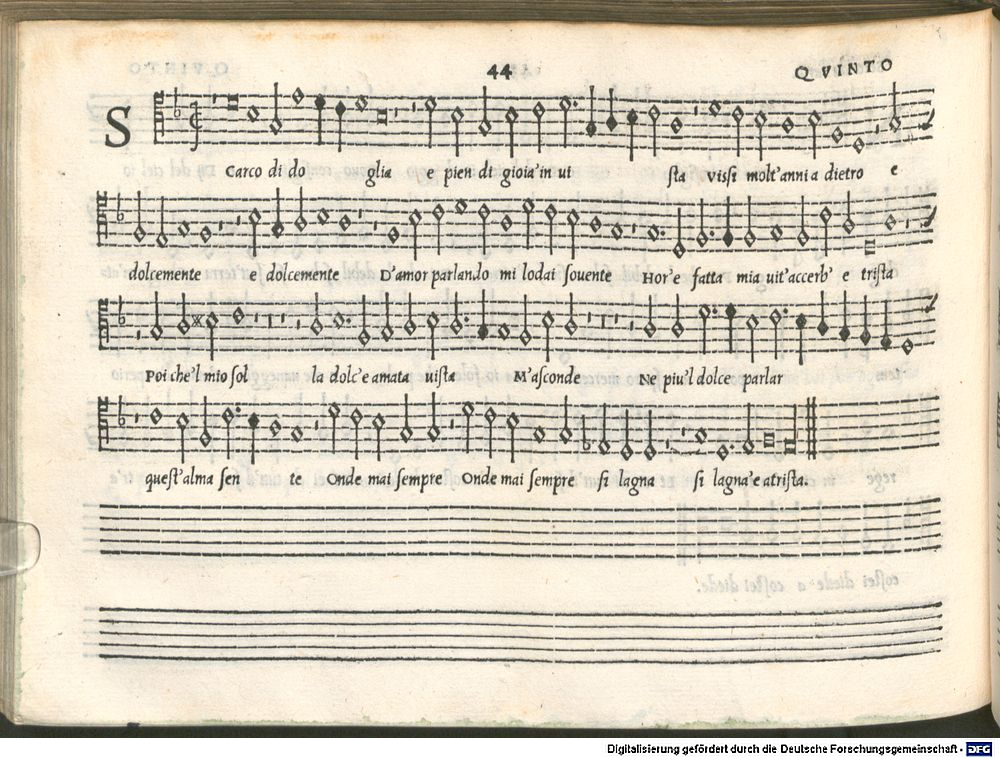 44
QVINTO
S
Carco di do glia e pien di gioia'in ui sta vissi molt'anni a dietro e
dolcemente e dolcemente D'amor parlando mi lodai souente Hor'e fatta mia uit'accerb' e trista
Poi che'l mio sol la dolc'e amata uista M'asconde Ne piu'l dolce parlar
quest'alma sen te Onde mai sempre Onde mai sempre si lagna si lagna'e atrista.
Digitalisierung gefördert durch die Deutsche Forschungsgemeinschaft - DFG